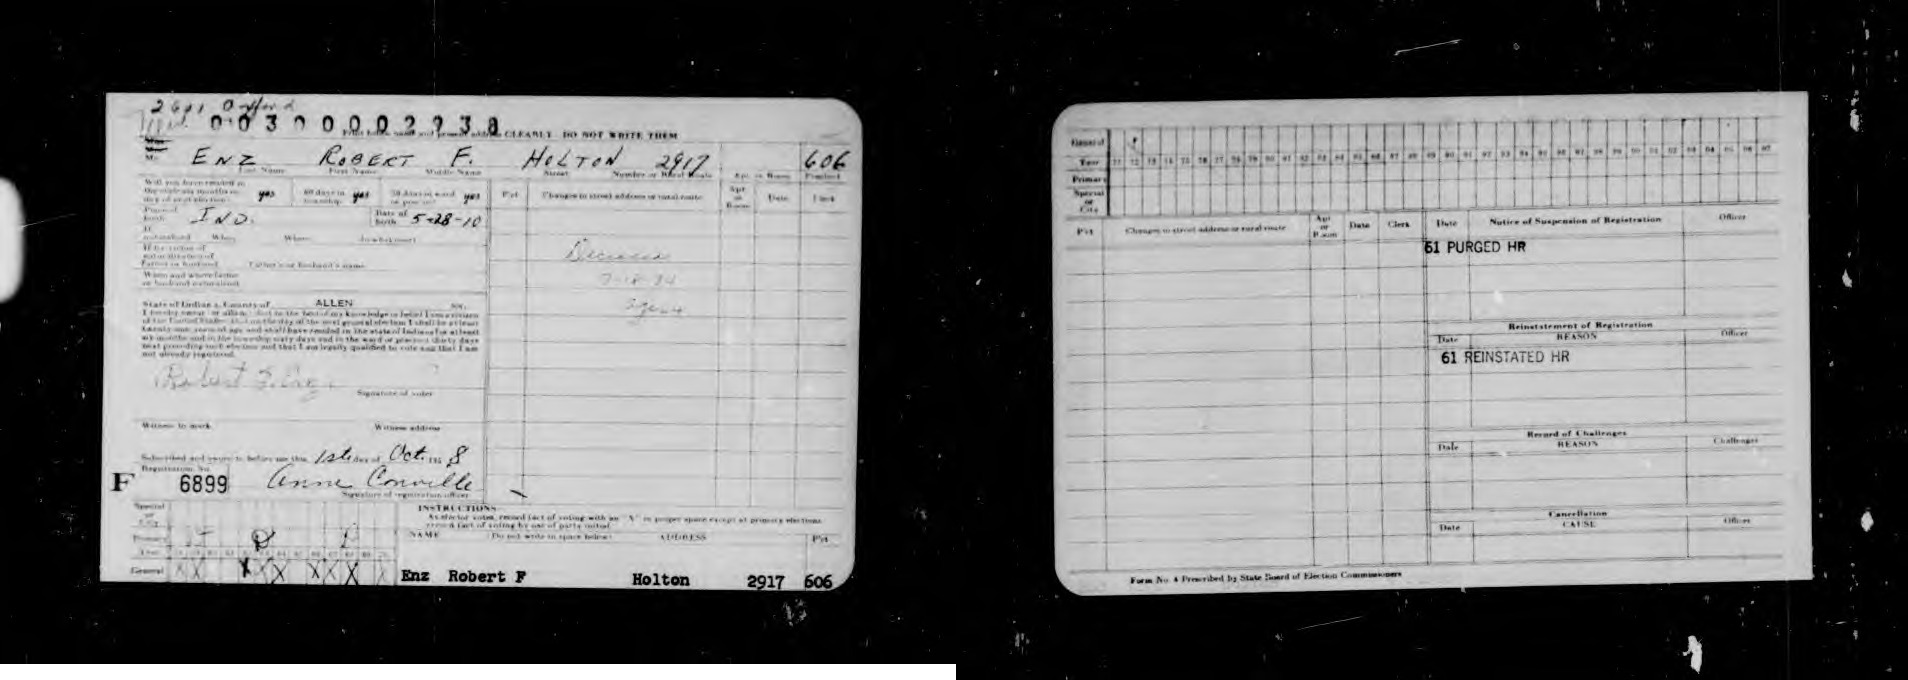 2601 Oxford
Print below name and present address CLEARLY DO NOT WRITE THEM
Mr. ENZ ROBERT F. HOLTON 2917 606
Last Name First Name Middle Name Street Number or Rural Route Apt. or Room Precinct
Will you have resided in the state six months on day of next election yes 60 days in township yes 30 days in ward or precinct yes
Pct Changes to street address or rural route Apt or Room Date Clerk
Place of birth IND. Date of birth 5-28-10
If naturalized When Where In what court
If by virtue of naturalization of Father or husband Father's or husband's name
When and where father or husband naturalized
Deceased
State of Indiana, County of ALLEN ss:
I hereby swear (or affirm) that to the best of my knowledge and belief I am a citizen
of the United States, that on the day of the next general election I shall be at least
twenty-one years of age and shall have resided in the state of Indiana for at least
six months and in the township sixty days and in the ward or precinct thirty days
next preceding such election and that I am legally qualified to vote and that I am
not already registered.
Robert F. Enz
Signature of voter
Witness to mark Witness address
Subscribed and sworn to before me this 1st day of Oct. 195 8
Registration No.
F 6899 Anne Conville
Signature of registration officer
Special or City
Primary
Year
General
INSTRUCTIONS
As elector votes, record fact of voting with an "X" in proper space except at primary elections
record fact of voting by use of party initial.
NAME (Do not write in space below) ADDRESS Pct
Enz Robert F Holton 2917 606
General
Year 71 72 73 74 75 76 77 78 79 80 81 82 83 84 85 86 87 88 89 90 91 92 93 94 95 96 97 98 99 00 01 02 03 04 05 06 07
Primary
Special or City
Pct Changes to street address or rural route Apt or Room Date Clerk
Date Notice of Suspension of Registration Officer
61 PURGED HR
Reinstatement of Registration
Date REASON Officer
61 REINSTATED HR
Record of Challenges
Date REASON Challenger
Cancellation
Date CAUSE Officer
Form No. 4 Prescribed by State Board of Election Commissioners